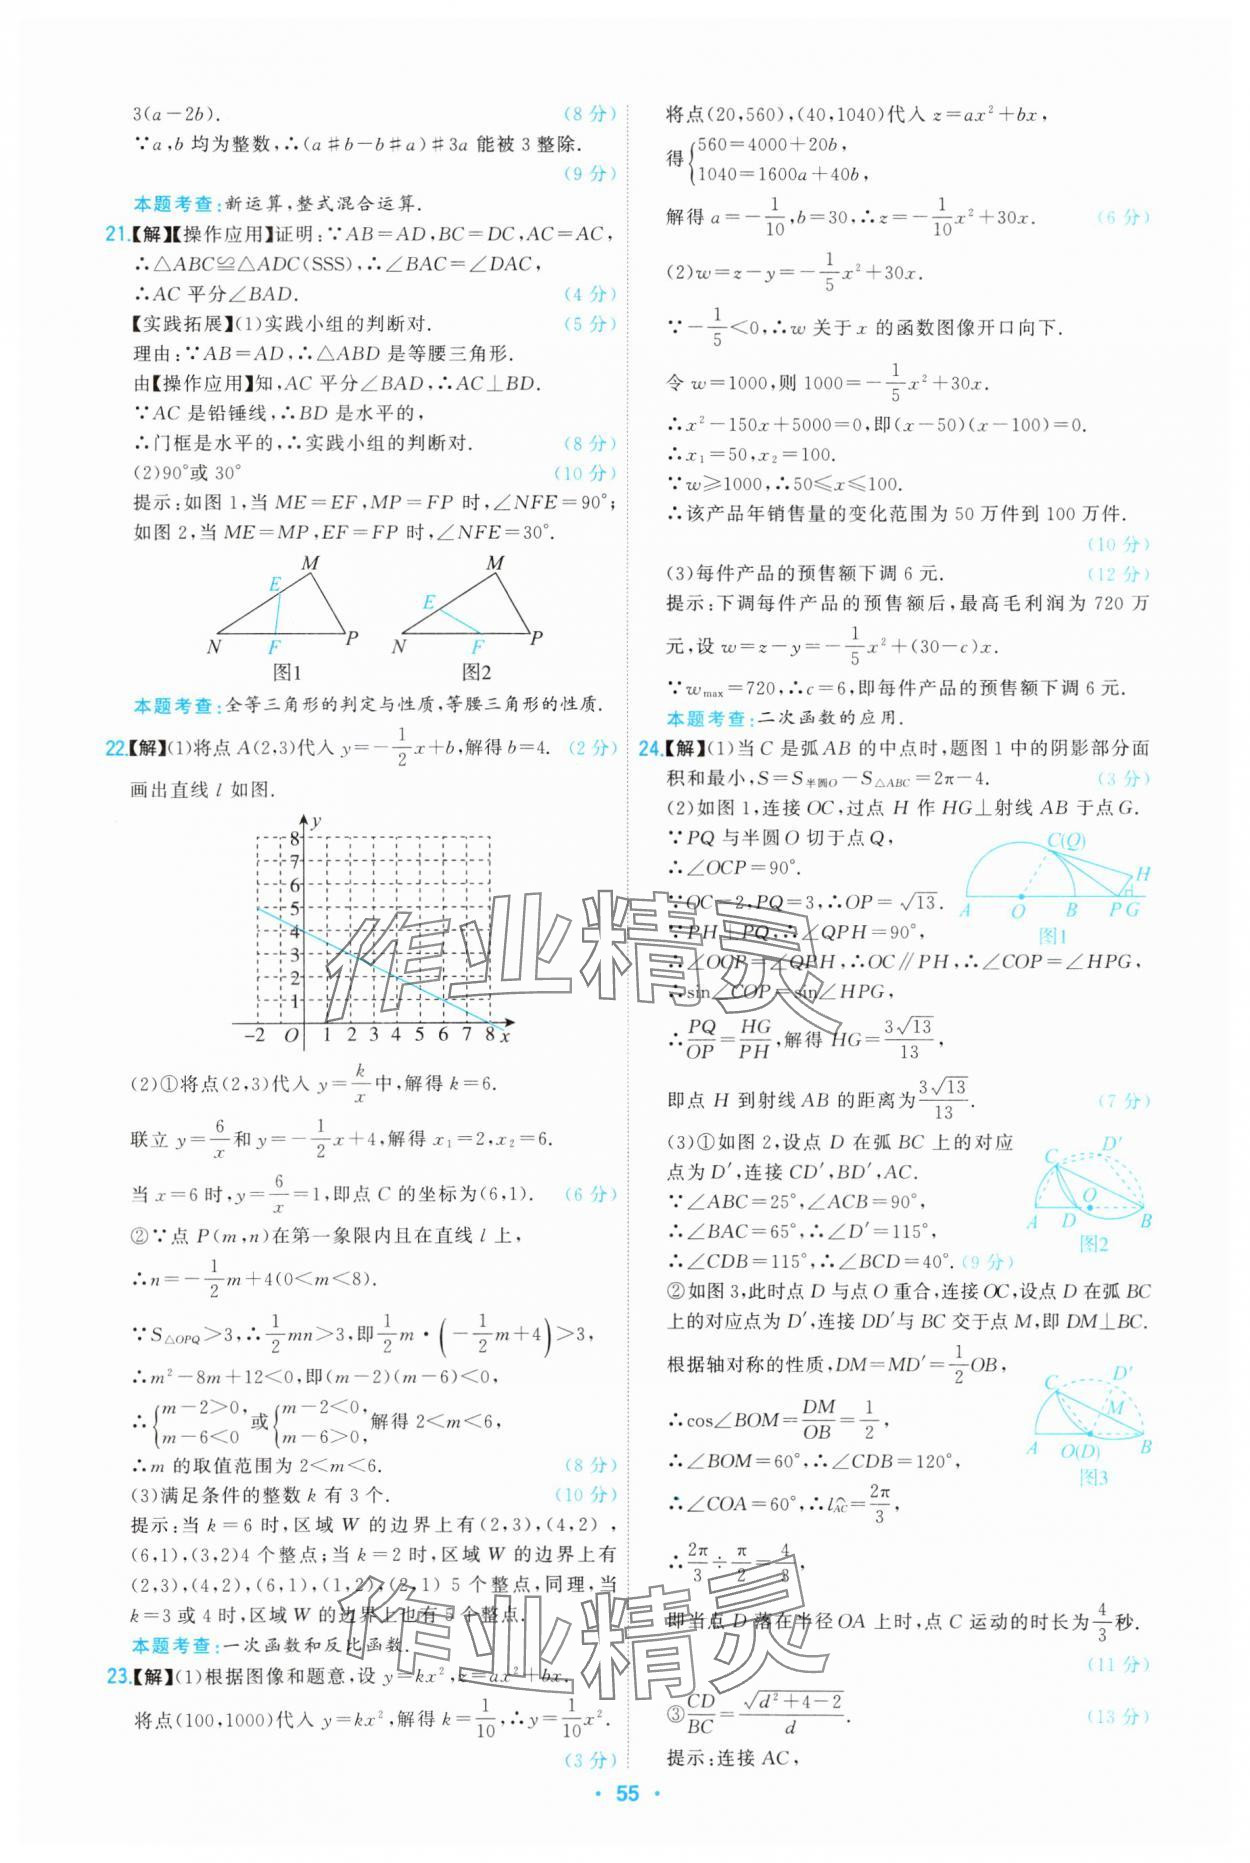 3(a-2b). (8 分)
∵a,b 均为整数,∴(a♯b-b♯a)♯3a 能被 3 整除.
(9 分)
本题考查:新运算,整式混合运算.
21.【解】【操作应用】证明:∵AB=AD,BC=DC,AC=AC,
∴△ABC≌△ADC(SSS),∴∠BAC=∠DAC,
∴AC 平分∠BAD. (4 分)
【实践拓展】(1)实践小组的判断对. (5 分)
理由:∵AB=AD,∴△ABD 是等腰三角形.
由【操作应用】知,AC 平分∠BAD,∴AC⊥BD.
∵AC 是铅锤线,∴BD 是水平的,
∴门框是水平的,∴实践小组的判断对. (8 分)
(2)90°或 30° (10 分)
提示:如图 1,当 ME=EF,MP=FP 时,∠NFE=90°;
如图 2,当 ME=MP,EF=FP 时,∠NFE=30°.
M E N F P 图1
M E N F P 图2
本题考查:全等三角形的判定与性质,等腰三角形的性质.
22.【解】(1)将点 A(2,3)代入 y=-1/2 x+b,解得 b=4. (2 分)
画出直线 l 如图.
y
8
7
6
5
4
3
2
1
-2 O 1 2 3 4 5 6 7 8 x
(2)①将点(2,3)代入 y=k/x 中,解得 k=6.
联立 y=6/x 和 y=-1/2 x+4,解得 x₁=2,x₂=6.
当 x=6 时,y=6/x=1,即点 C 的坐标为(6,1). (6 分)
②∵点 P(m,n)在第一象限内且在直线 l 上,
∴n=-1/2 m+4(0<m<8).
∵S△OPQ>3,∴1/2 mn>3,即 1/2 m·(-1/2 m+4)>3,
∴m²-8m+12<0,即(m-2)(m-6)<0,
∴{m-2>0, m-6<0 或 {m-2<0, m-6>0, 解得 2<m<6,
∴m 的取值范围为 2<m<6. (8 分)
(3)满足条件的整数 k 有 3 个. (10 分)
提示:当 k=6 时,区域 W 的边界上有(2,3),(4,2),
(6,1),(3,2)4 个整点;当 k=2 时,区域 W 的边界上有
(2,3),(4,2),(6,1),(1,2),(2,1) 5 个整点,同理,当
k=3 或 4 时,区域 W 的边界上也有 5 个整点.
本题考查:一次函数和反比函数.
23.【解】(1)根据图像和题意,设 y=kx²,z=ax²+bx,
将点(100,1000)代入 y=kx²,解得 k=1/10,∴y=1/10 x².
(3 分)
将点(20,560),(40,1040)代入 z=ax²+bx,
得{560=4000+20b, 1040=1600a+40b,
解得 a=-1/10,b=30,∴z=-1/10 x²+30x. (6 分)
(2)w=z-y=-1/5 x²+30x.
∵-1/5<0,∴w 关于 x 的函数图像开口向下.
令 w=1000,则 1000=-1/5 x²+30x.
∴x²-150x+5000=0,即(x-50)(x-100)=0.
∴x₁=50,x₂=100.
∵w≥1000,∴50≤x≤100.
∴该产品年销售量的变化范围为 50 万件到 100 万件.
(10 分)
(3)每件产品的预售额下调 6 元. (12 分)
提示:下调每件产品的预售额后,最高毛利润为 720 万
元,设 w=z-y=-1/5 x²+(30-c)x.
∵wmax=720,∴c=6,即每件产品的预售额下调 6 元.
本题考查:二次函数的应用.
24.【解】(1)当 C 是弧 AB 的中点时,题图 1 中的阴影部分面
积和最小,S=S半圆O-S△ABC=2π-4. (3 分)
(2)如图 1,连接 OC,过点 H 作 HG⊥射线 AB 于点 G.
∵PQ 与半圆 O 切于点 Q,
∴∠OCP=90°.
∵OC=2,PQ=3,∴OP=√13.
∵PH⊥PQ,∴∠QPH=90°,
C(Q) H A O B P G 图1
∴∠OQP=∠QPH,∴OC∥PH,∴∠COP=∠HPG,
∴sin∠COP=sin∠HPG,
∴PQ/OP=HG/PH,解得 HG=3√13/13,
即点 H 到射线 AB 的距离为3√13/13. (7 分)
(3)①如图 2,设点 D 在弧 BC 上的对应
点为 D′,连接 CD′,BD′,AC.
∵∠ABC=25°,∠ACB=90°,
∴∠BAC=65°,∴∠D′=115°,
∴∠CDB=115°,∴∠BCD=40°. (9 分)
C D′ O A D B 图2
②如图 3,此时点 D 与点 O 重合,连接 OC,设点 D 在弧 BC
上的对应点为 D′,连接 DD′与 BC 交于点 M,即 DM⊥BC.
根据轴对称的性质,DM=MD′=1/2 OB,
∴cos∠BOM=DM/OB=1/2,
∴∠BOM=60°,∴∠CDB=120°,
∴∠COA=60°,∴l AC=2π/3,
C D′ M A O(D) B 图3
∴2π/3÷π/2=4/3,
即当点 D 落在半径 OA 上时,点 C 运动的时长为4/3秒.
(11 分)
③CD/BC=√(d²+4-2)/d. (13 分)
提示:连接 AC,
作业精灵
作业精灵
· 55 ·